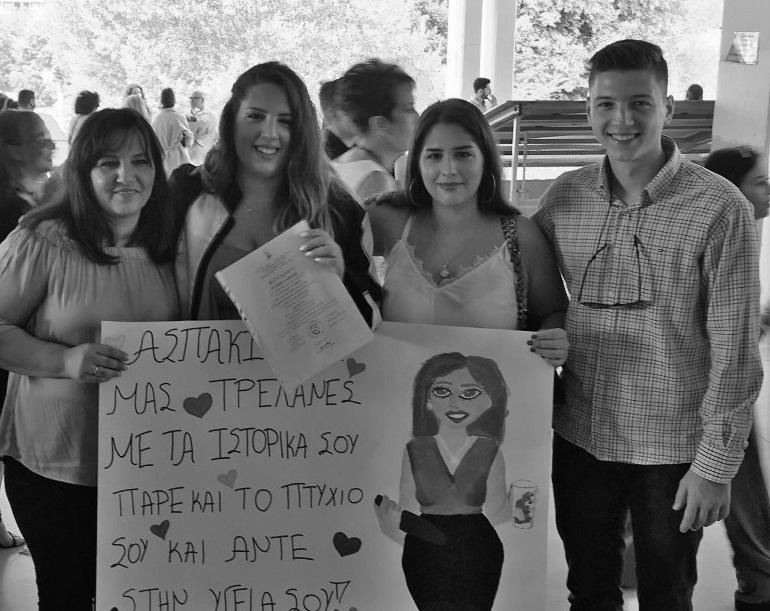 ΑΣΠΑΚΙ
ΜΑΣ ΤΡΕΛΑΝΕΣ
ΜΕ ΤΑ ΙΣΤΟΡΙΚΑ ΣΟΥ
ΠΑΡΕ ΚΑΙ ΤΟ ΠΤΥΧΙΟ
ΣΟΥ ΚΑΙ ΑΝΤΕ
ΣΤΗΝ ΥΓΕΙΑ ΣΟΥ!!